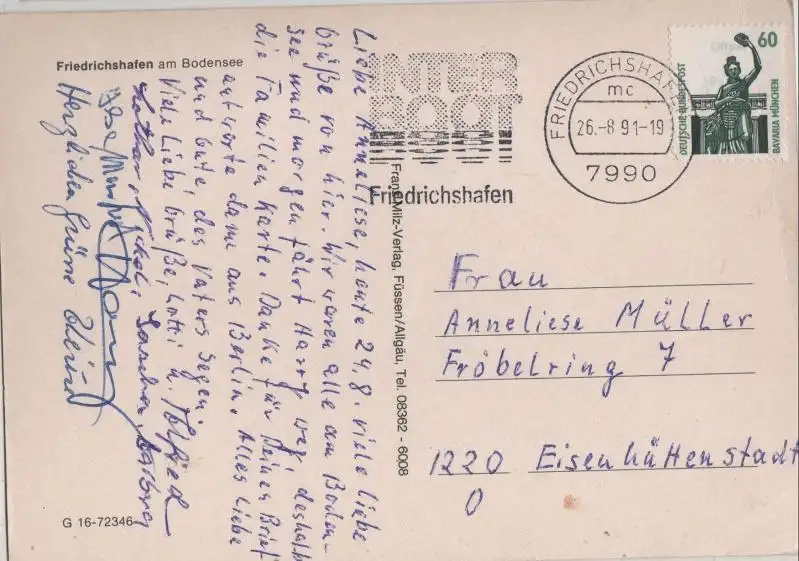 Friedrichshafen am Bodensee
Liebe Anneliese, heute 24.8. viele liebe
Grüße von hier. Wir waren alle am Boden-
see und morgen fährt Harry weg, deshalb
die Familienkarte. Danke für Deinen Brief
antworte dann aus Berlin. Alles Liebe
und Gute, des Vaters Segen.
Viele liebe Grüße, Lotti u.
Lothar,
Herzlichen Grüsse
G 16-72346
Franz Milz-Verlag, Füssen/Allgäu, Tel. 08362 - 6008
INTER
BOOT
Friedrichshafen
FRIEDRICHSHAFEN
mc
26.-8 91-19
7990
60
DEUTSCHE BUNDESPOST
BAVARIA MÜNCHEN
Frau
Anneliese Müller
Fröbelring 7
1220 Eisenhüttenstadt
O